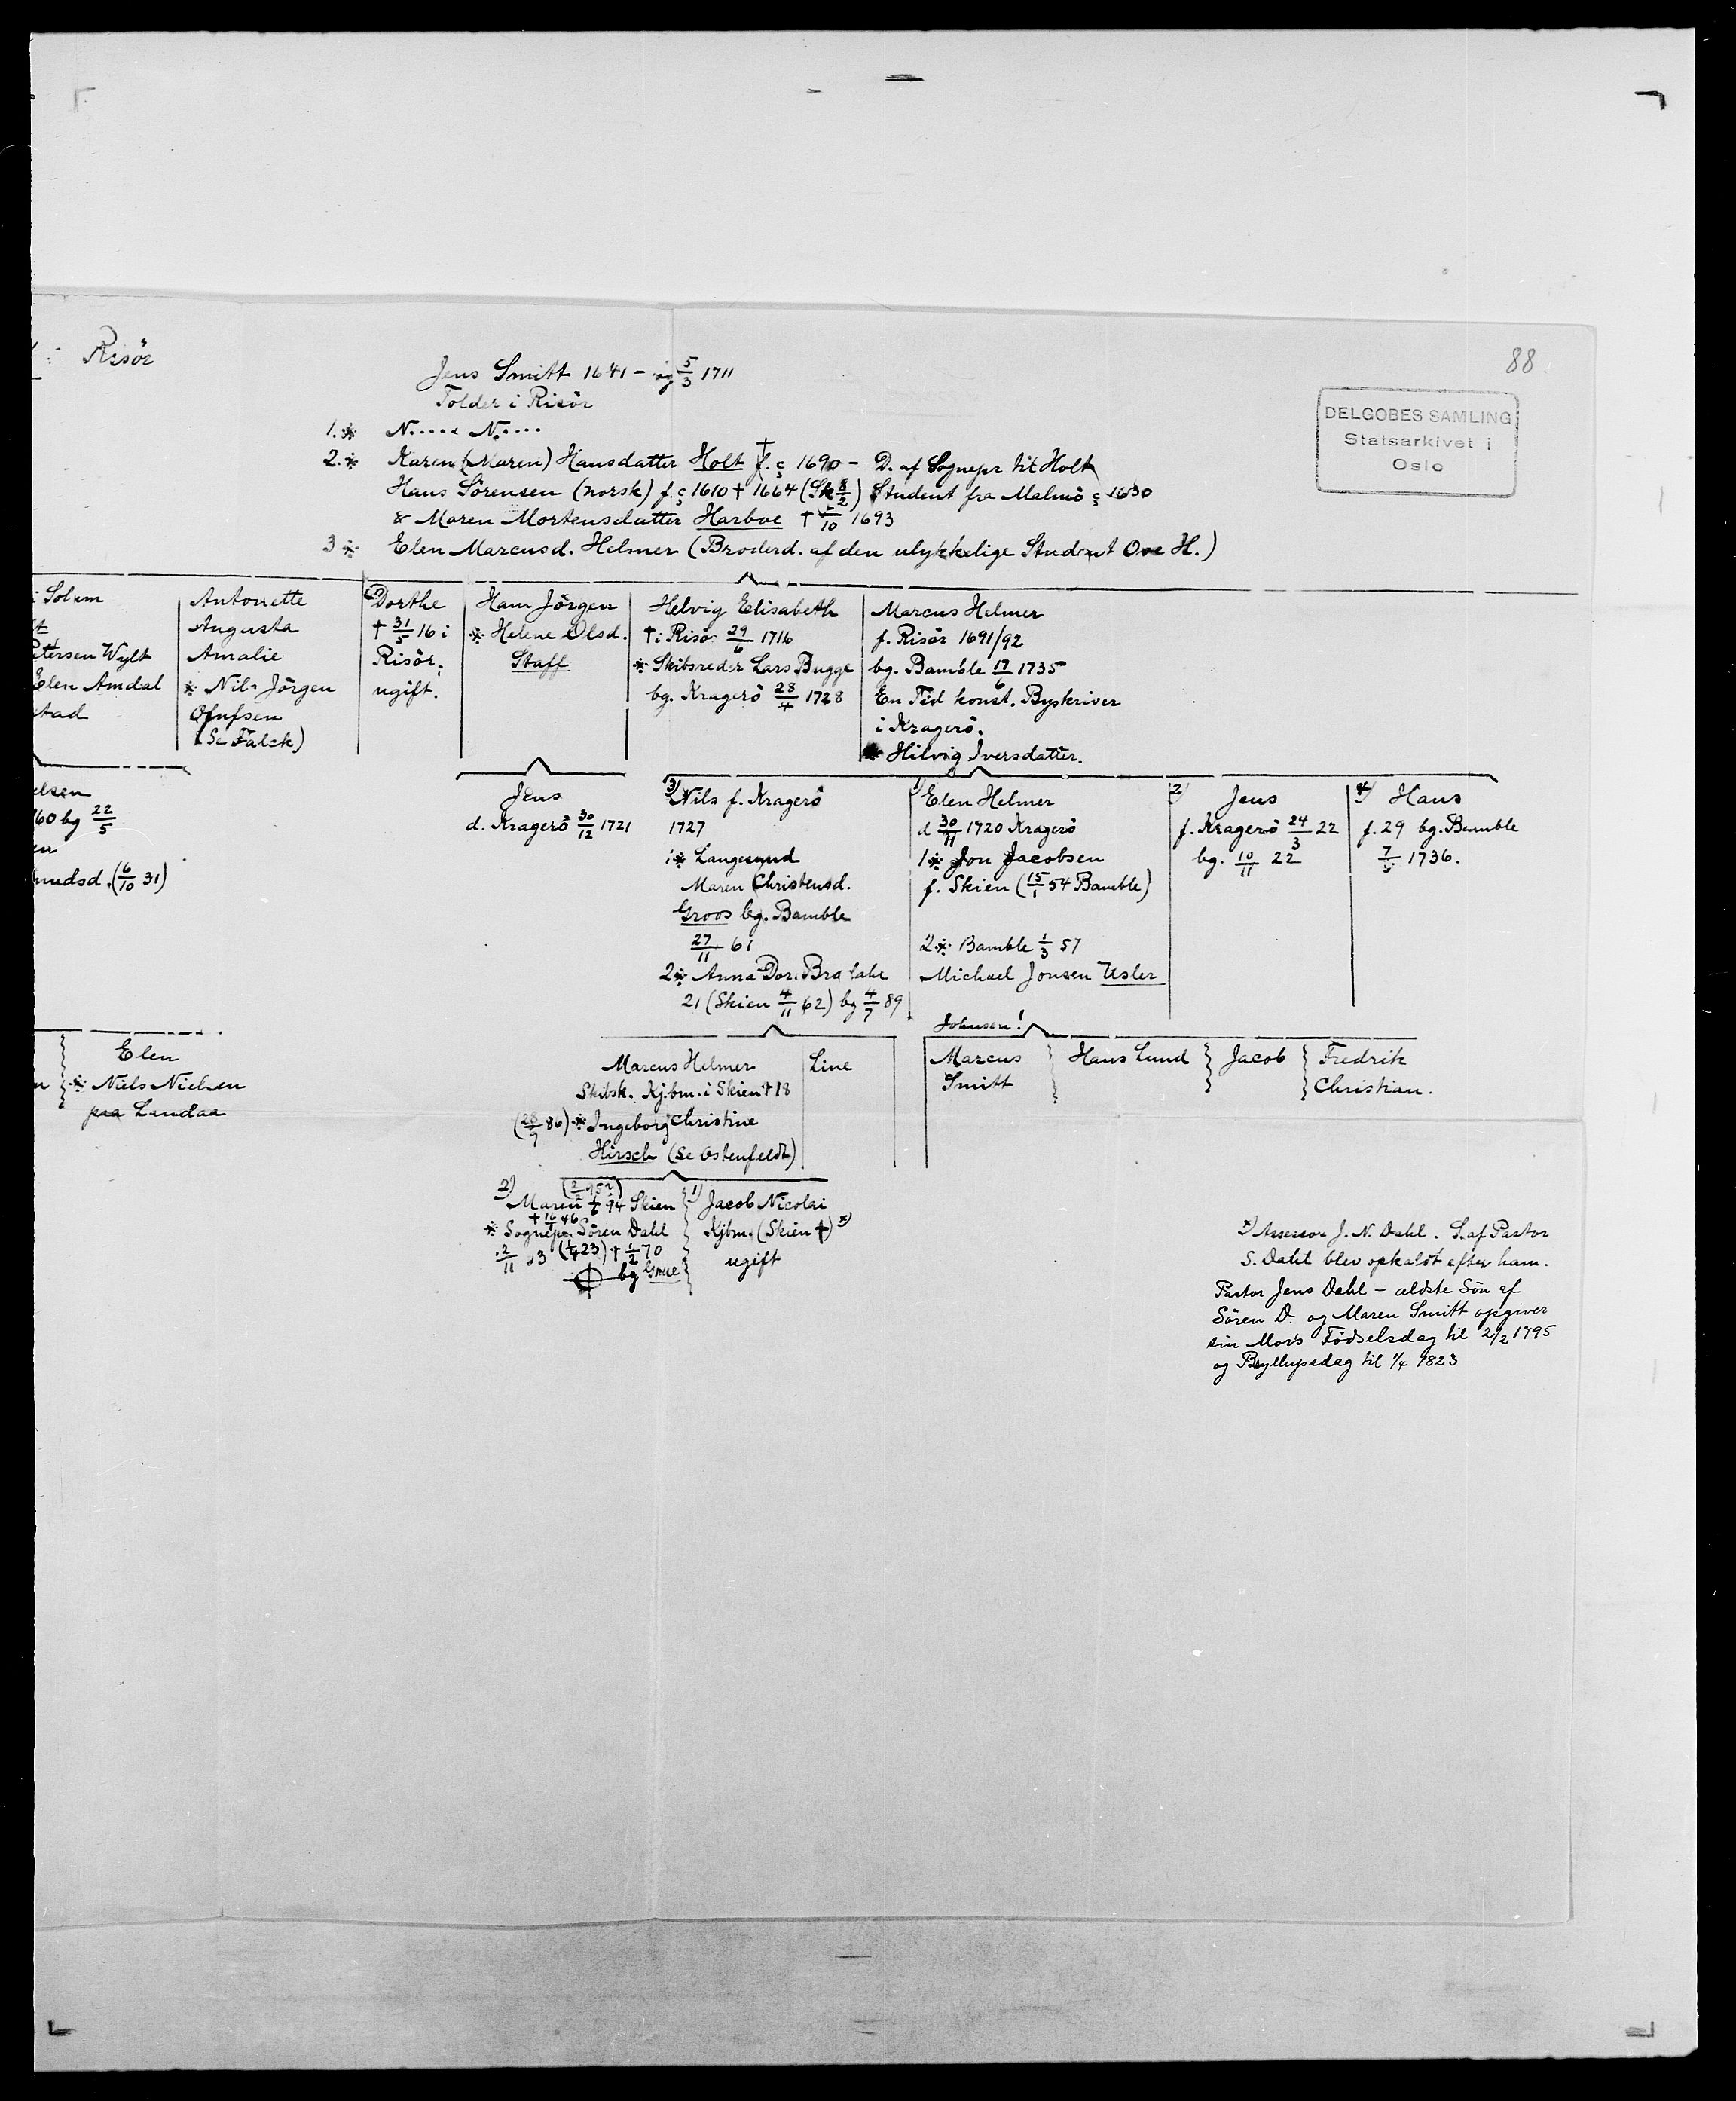 Risör
88
DELGOBES SAMLING
Statsarkivet i
Oslo
Jens Smitt 1641 - bg 5/3 1711
Tolder i Risör
1. * N..... N.....
2. * Karen (Maren) Hansdatter Holt † f. c 1690 - D. af Sognepr til Holt
Hans Sörensen (norsk) f. c 1610 † 1664 (Sk 8/2) Student fra Malmö c 1630
& Maren Mortensdatter Harboe † /10 1693
3 * Elen Marcusd. Helmer (Broderd. af den ulykkelige Student Ove H.)
i Solum
Petersen Wylt
Elen Amdal
stad
Antonette
Augusta
Amalie
* Nils Jörgen
Olufsen
(Se Falck)
Dorthe
† 31/5 16 i
Risör.
ugift.
Hans Jörgen
* Helene Olsd.
Staff
Helvig Elisabeth
† i Risö 29/6 1716
* Skibsreder Lars Bugge
bg. Kragerö 28/4 1728
Marcus Helmer
f. Risör 1691/92
bg. Bamble 17/6 1735
En Tid konst. Byskriver
i Kragerö.
* Hilvig Iversdatter.
elsen
60 bg 22/5
en
undsd. (6/10 31)
Jens
d. Kragerö 30/12 1721
3) Nils f. Kragerö
1727
1 * Langesund
Maren Christensd.
Groos bg. Bamble
27/11 61
2 * Anna Dor.
21 (Skien 4/11 62) bg 4/7 89
1) Elen Helmer
d 30/11 1720 Kragerö
1 * Jon Jacobsen
f. Skien (15/1 54 Bamble)
2 * Bamble 1/3 57
Michael Jonsen Usler
2) Jens
f. Kragerö 24/3 22
bg. 10/11 22
4) Hans
f. 29 bg. Bamble
7/5 1736.
Elen
n * Niels Nielsen
paa Landaa
Marcus Helmer
Skibsk. Kjbm. i Skien † 18
(28/7 86) * Ingeborg Christine
Hirsch (Se Ostenfeldt)
Line
Johnsen!
Marcus
Smitt
Hans Lund
Jacob
Fredrik
Christian.
2) Maren 1/6 94 Skien
† 16/1 46
* Sognepr. Sören Dahl
2/11 (1/4 23) † 1/2 70
bg
1) Jacob Nicolai
Kjbm. (Skien †) x)
ugift
x) Assessor J. N. Dahl. S. af Pastor
S. Dahl blev opkaldt efter ham.
Pastor Jens Dahl - ældste Sön af
Sören D. og Maren Smitt opgiver
sin Mors Födselsdag til 2/2 1795
og Bryllupsdag til 1/4 1823